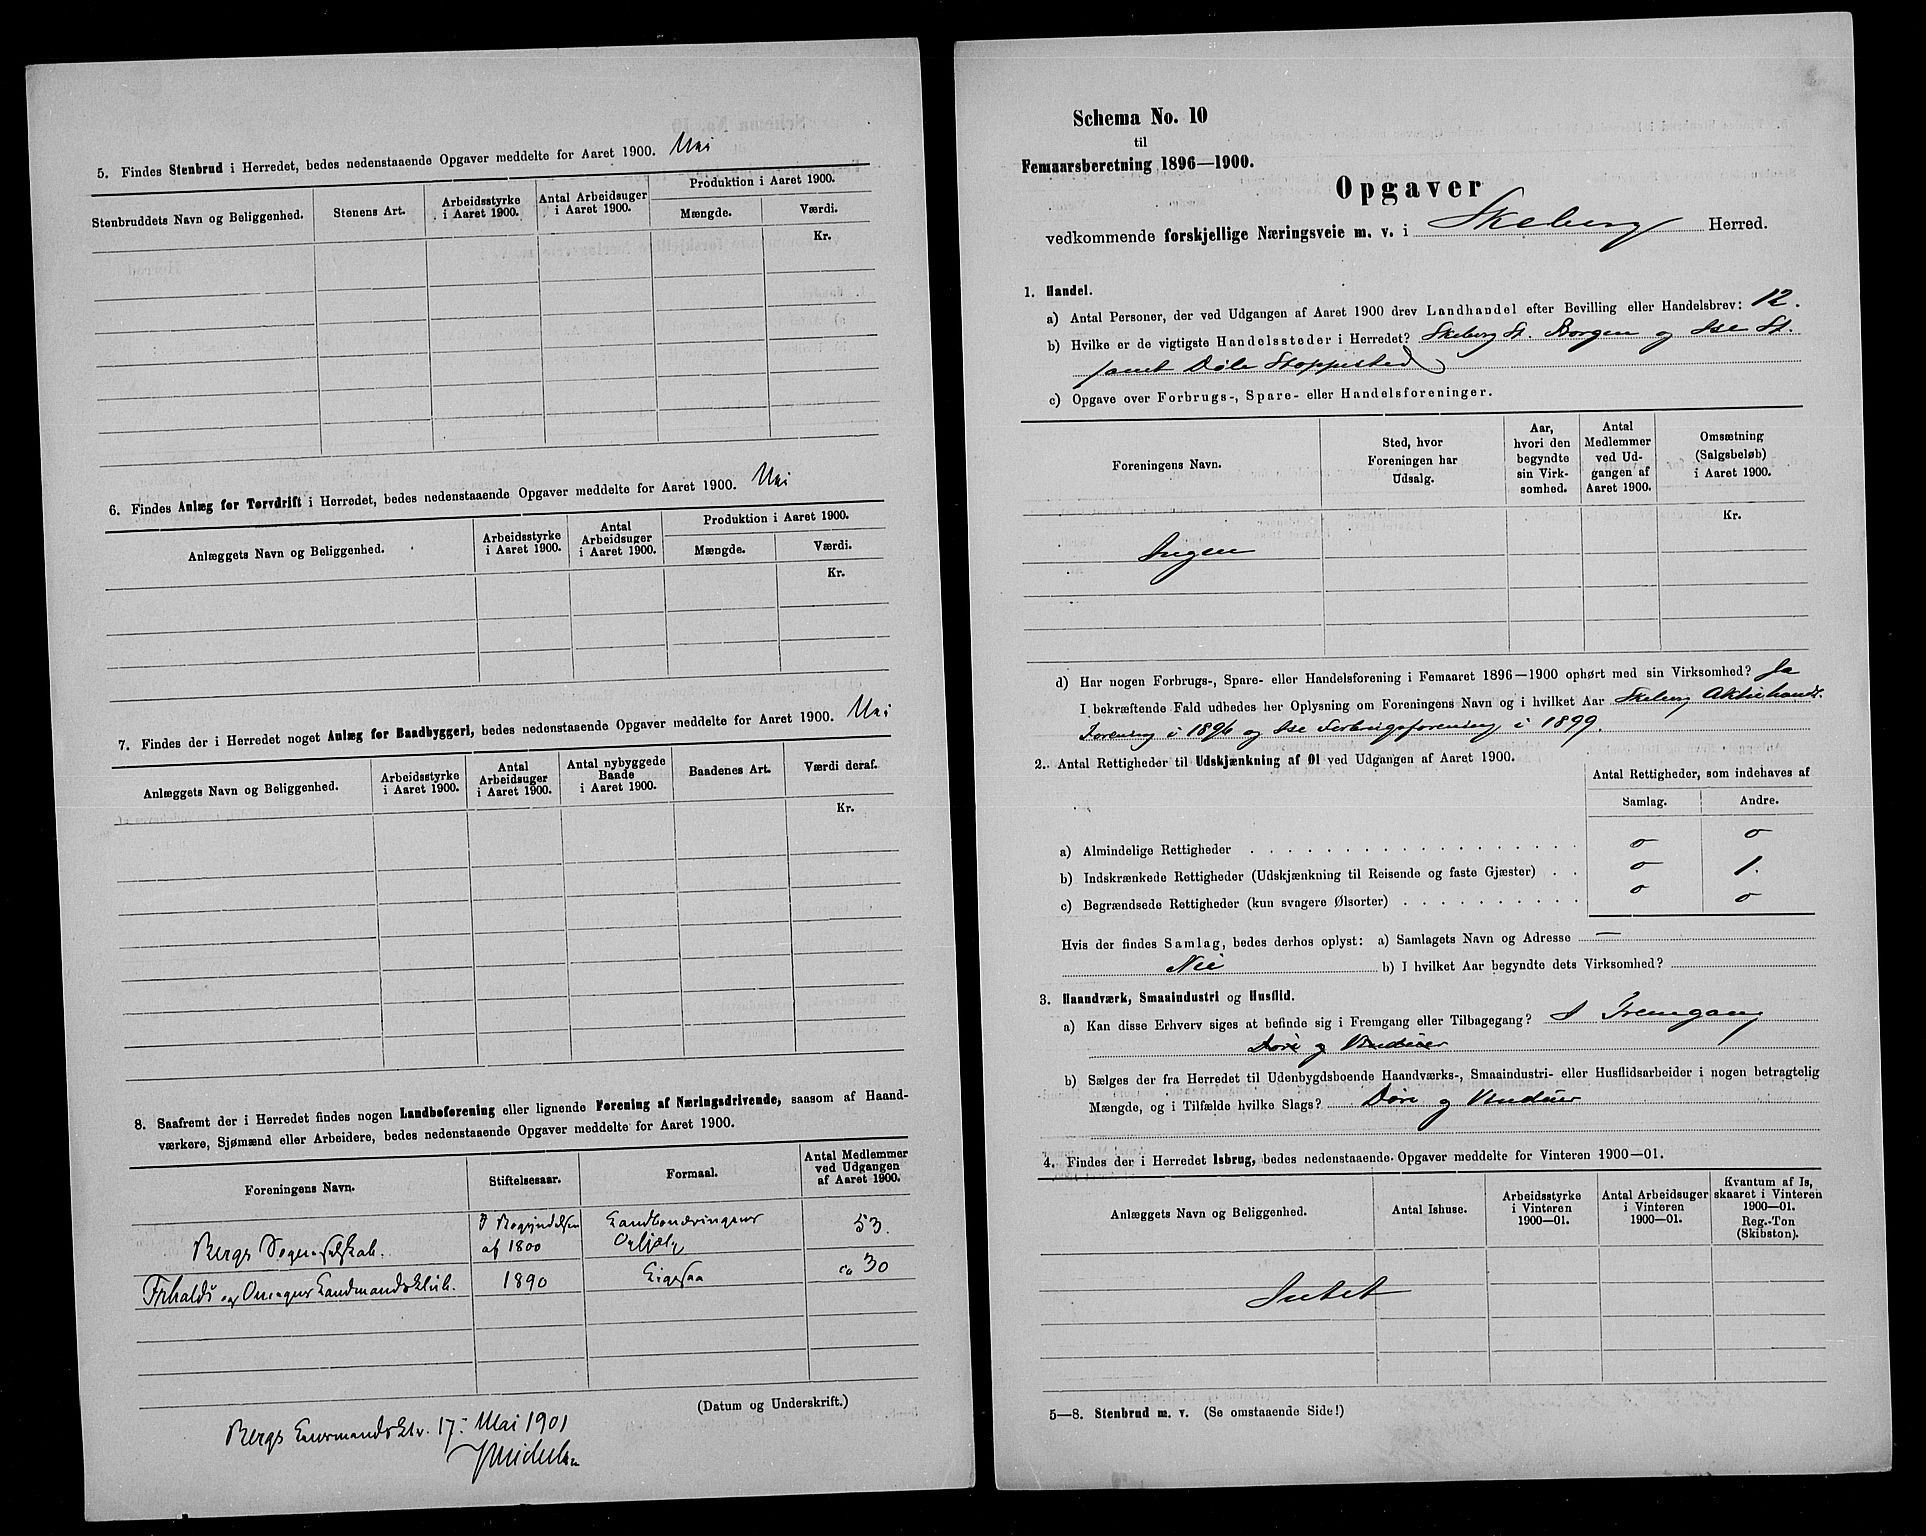 5. Findes Stenbrud i Herredet, bedes nedenstaaende Opgaver meddelte for Aaret 1900. Nei
Stenbruddets Navn og Beliggenhed. Stenens Art. Arbeidsstyrke i Aaret 1900. Antal Arbeidsuger i Aaret 1900. Produktion i Aaret 1900.
Mængde. Værdi.
Kr.
6. Findes Anlæg for Torvdrift i Herredet, bedes nedenstaaende Opgaver meddelte for Aaret 1900. Nei
Anlæggets Navn og Beliggenhed. Arbeidsstyrke i Aaret 1900. Antal Arbeidsuger i Aaret 1900. Produktion i Aaret 1900.
Mængde. Værdi.
Kr.
7. Findes der i Herredet noget Anlæg for Baadbyggeri, bedes nedenstaaende Opgaver meddelte for Aaret 1900. Nei
Anlæggets Navn og Beliggenhed. Arbeidsstyrke i Aaret 1900. Antal Arbeidsuger i Aaret 1900. Antal nybyggede Baade i Aaret 1900. Baadenes Art. Værdi deraf.
Kr.
8. Saafremt der i Herredet findes nogen Landboforening eller lignende Forening af Næringsdrivende, saasom af Haand-
værkere, Sjømænd eller Arbeidere, bedes nedenstaaende Opgaver meddelte for Aaret 1900.
Foreningens Navn. Stiftelsesaar. Formaal. Antal Medlemmer ved Udgangen af Aaret 1900.
Bergs Sogneselskab. I Begyndelsen af 1800 Landbonæringens Ophjælp 53.
og Landmandsklub. 1890 Ligesaa ca 30
(Datum og Underskrift.)
Bergs Lensmandsktr. 17. Mai 1901
Schema No. 10
til
Femaarsberetning 1896—1900.
Opgaver
vedkommende forskjellige Næringsveie m. v. i Skeberg Herred.
1. Handel.
a) Antal Personer, der ved Udgangen af Aaret 1900 drev Landhandel efter Bevilling eller Handelsbrev: 12.
b) Hvilke er de vigtigste Handelssteder i Herredet? Skeberg St. Borgen og Ise St.
samt Døle Stoppested
c) Opgave over Forbrugs-, Spare- eller Handelsforeninger.
Foreningens Navn. Sted, hvor Foreningen har Udsalg. Aar, hvori den begyndte sin Virksomhed. Antal Medlemmer ved Udgangen af Aaret 1900. Omsætning (Salgsbeløb) i Aaret 1900.
Kr.
Ingen
d) Har nogen Forbrugs-, Spare- eller Handelsforening i Femaaret 1896—1900 ophørt med sin Virksomhed? Ja
I bekræftende Fald udbedes her Oplysning om Foreningens Navn og i hvilket Aar Skeberg Aktiehandels
Forening i 1896 og Ise Forbrugsforening i 1899.
2. Antal Rettigheder til Udskjænkning af Øl ved Udgangen af Aaret 1900.
Antal Rettigheder, som indehaves af
Samlag. Andre.
a) Almindelige Rettigheder 0 0
b) Indskrænkede Rettigheder (Udskjænkning til Reisende og faste Gjæster) 0 1.
c) Begrændsede Rettigheder (kun svagere Ølsorter) 0 0
Hvis der findes Samlag, bedes derhos oplyst: a) Samlagets Navn og Adresse —
Nei b) I hvilket Aar begyndte dets Virksomhed?
3. Haandværk, Smaaindustri og Husflid.
a) Kan disse Erhverv siges at befinde sig i Fremgang eller Tilbagegang? I Fremgang
Døre og Vinduer
b) Sælges der fra Herredet til Udenbygdsboende Haandværks-, Smaaindustri- eller Husflidsarbeider i nogen betragtelig
Mængde, og i Tilfælde hvilke Slags? Døre og Vinduer
4. Findes der i Herredet Isbrug, bedes nedenstaaende Opgaver meddelte for Vinteren 1900—01.
Anlæggets Navn og Beliggenhed. Antal Ishuse. Arbeidsstyrke i Vinteren 1900—01. Antal Arbeidsuger i Vinteren 1900—01. Kvantum af Is, skaaret i Vinteren 1900—01. Reg.-Ton (Skibston).
Intet
5—8. Stenbrud m. v. (Se omstaaende Side!)